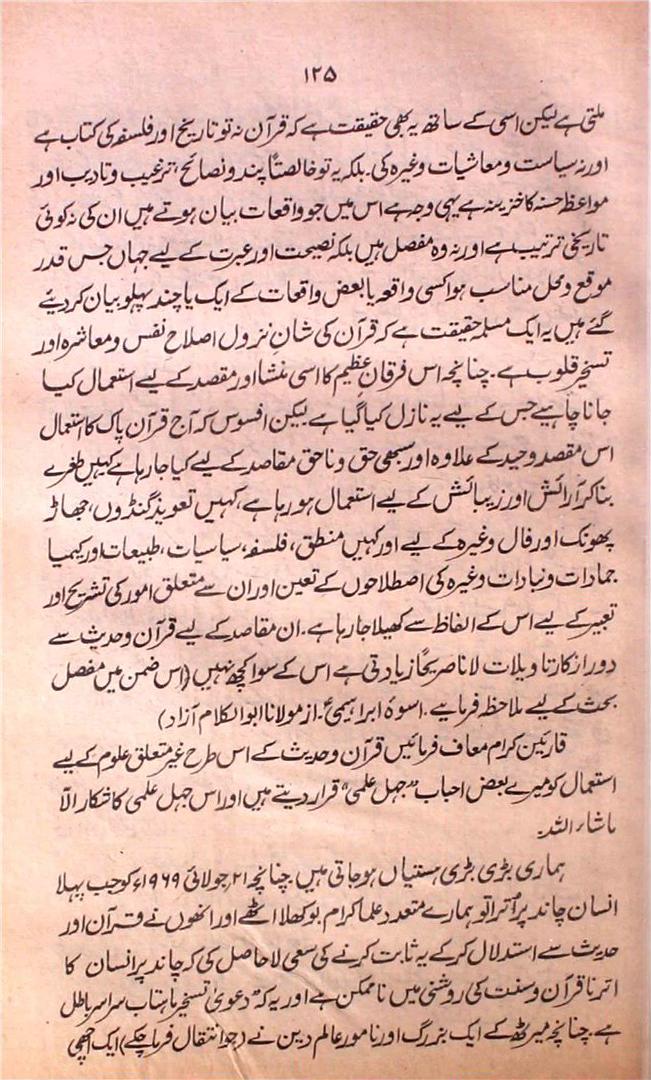 ۱۲۵
ملتی ہے لیکن اسی کے ساتھ یہ بھی حقیقت ہے کہ قرآن نہ تو تاریخ اور فلسفہ کی کتاب ہے
اور نہ سیاست و معاشیات وغیرہ کی۔ بلکہ یہ تو خالصتاً پند و نصائح، ترغیب و تادیب اور
مواعظ حسنہ کا خزینہ ہے یہی وجہ ہے اس میں جو واقعات بیان ہوتے ہیں ان کی نہ کوئی
تاریخی ترتیب ہے اور نہ وہ مفصل ہیں بلکہ نصیحت اور عبرت کے لیے جہاں جس قدر
موقع و محل مناسب ہوا کسی واقعہ یا بعض واقعات کے ایک یا چند پہلو بیان کر دیئے
گئے ہیں یہ ایک مسلمہ حقیقت ہے کہ قرآن کی شانِ نزول اصلاحِ نفس و معاشرہ اور
تسخیرِ قلوب ہے۔ چنانچہ اس فرقانِ عظیم کا اسی منشا اور مقصد کے لیے استعمال کیا
جانا چاہیے جس کے لیے یہ نازل کیا گیا ہے لیکن افسوس کہ آج قرآن پاک کا استعمال
اس مقصدِ وحید کے علاوہ اور سبھی حق و ناحق مقاصد کے لیے کیا جا رہا ہے کہیں طغرے
بنا کر آرائش اور زیبائش کے لیے استعمال ہو رہا ہے، کہیں تعویذ گنڈوں، جھاڑ
پھونک اور فال وغیرہ کے لیے اور کہیں منطق، فلسفہ، سیاسیات، طبیعات اور کیمیا
جمادات و نباتات وغیرہ کی اصطلاحوں کے تعین اور ان سے متعلق امور کی تشریح اور
تعبیر کے لیے اس کے الفاظ سے کھیلا جا رہا ہے۔ ان مقاصد کے لیے قرآن و حدیث سے
دور از کار تاویلات لانا صریحاً زیادتی ہے اس کے سوا کچھ نہیں (اس ضمن میں مفصل
بحث کے لیے ملاحظہ فرمایے۔ اسوۂ ابراہیمیؑ۔ از مولانا ابوالکلام آزاد)
قارئین کرام معاف فرمائیں قرآن و حدیث کے اس طرح غیر متعلق علوم کے لیے
استعمال کو میرے بعض احباب "جہل علمی" قرار دیتے ہیں اور اس جہل علمی کا شکار الّا
ماشاء اللہ۔
ہماری بڑی بڑی ہستیاں ہو جاتی ہیں۔ چنانچہ ۲۱ جولائی ۱۹۶۹ء کو جب پہلا
انسان چاند پر اُترا تو ہمارے متعدد علما کرام بوکھلا اٹھے اور انھوں نے قرآن اور
حدیث سے استدلال کر کے یہ ثابت کرنے کی سعی لاحاصل کی کہ چاند پر انسان کا
اترنا قرآن و سنت کی روشنی میں ناممکن ہے اور یہ کہ "دعویٰ تسخیر ماہتاب سراسر باطل
ہے۔ چنانچہ میرٹھ کے ایک بزرگ اور نامور عالم دین نے (جو انتقال فرما چکے) ایک اچھی